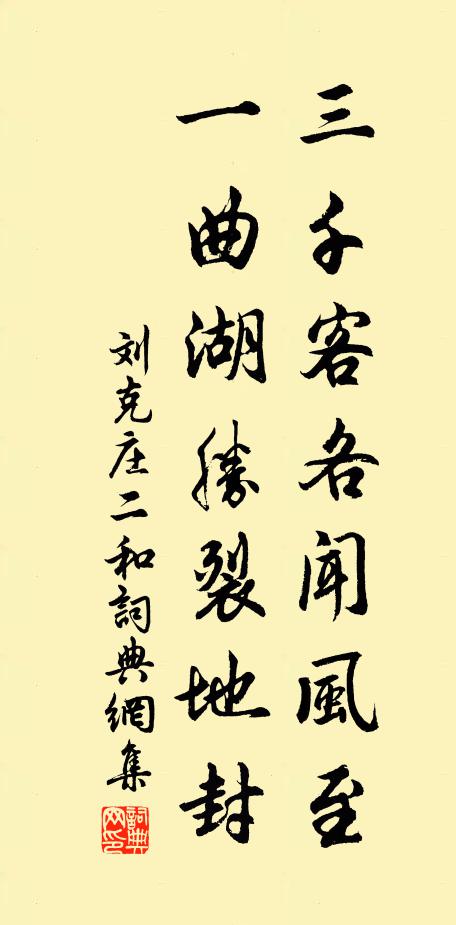 三千客各闻風至
一曲湖勝裂地封
刘克庄二和詞典網集
詞典网印